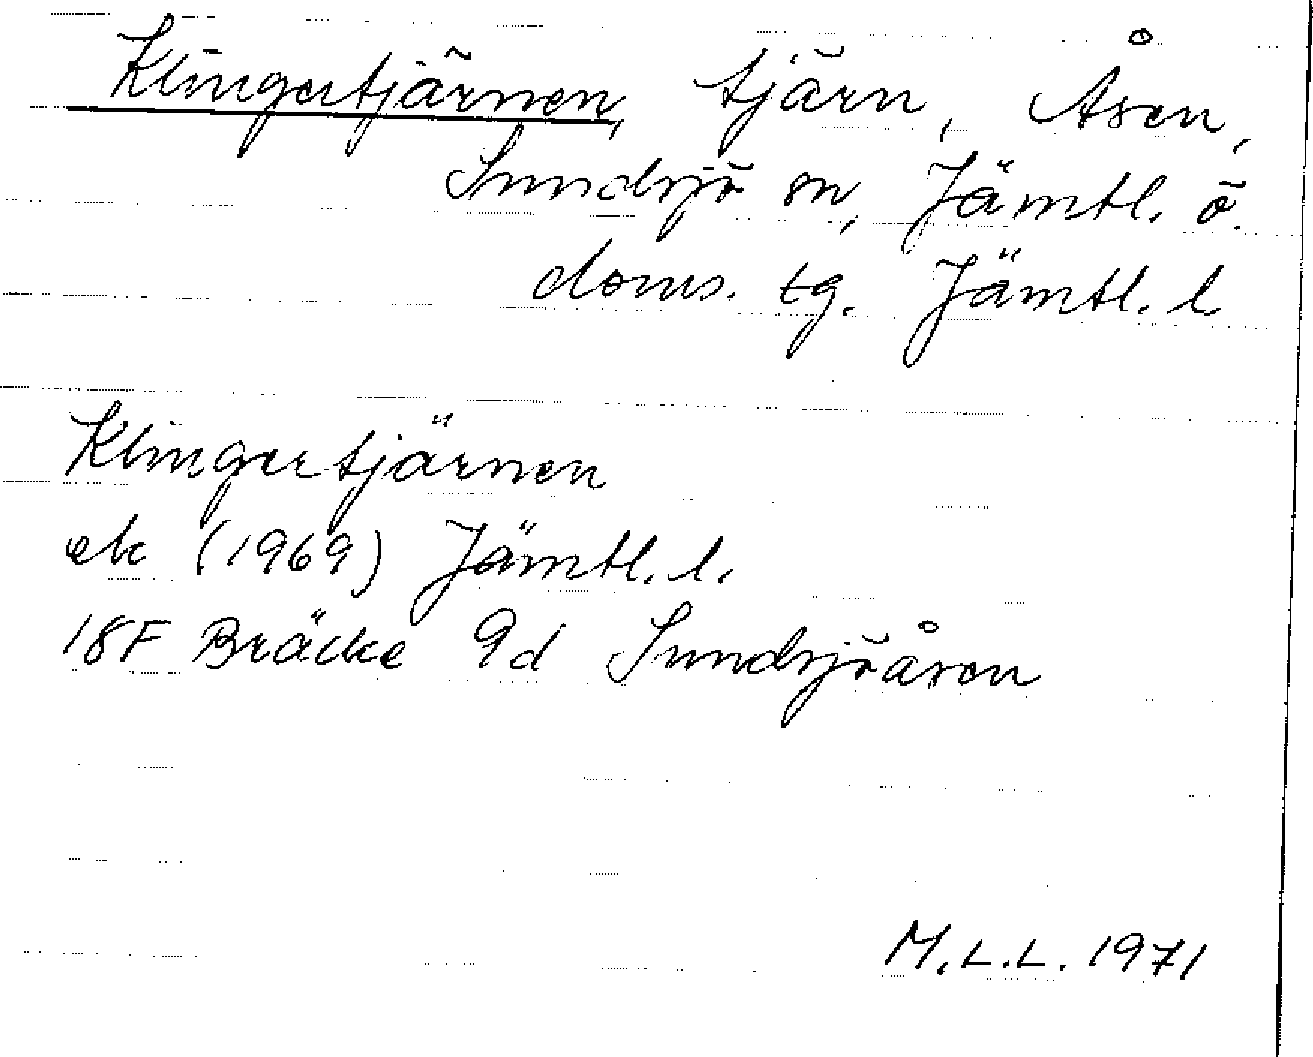 Klingertjärnen, tjärn, Åsen,
Sundsjö sn, Jämtl. ö.
doms. tg. Jämtl. l.
Klingertjärnen
ek (1969) Jämtl. l.
18F Bräcke 9d Sundsjöåsen
M.L.L. 1971